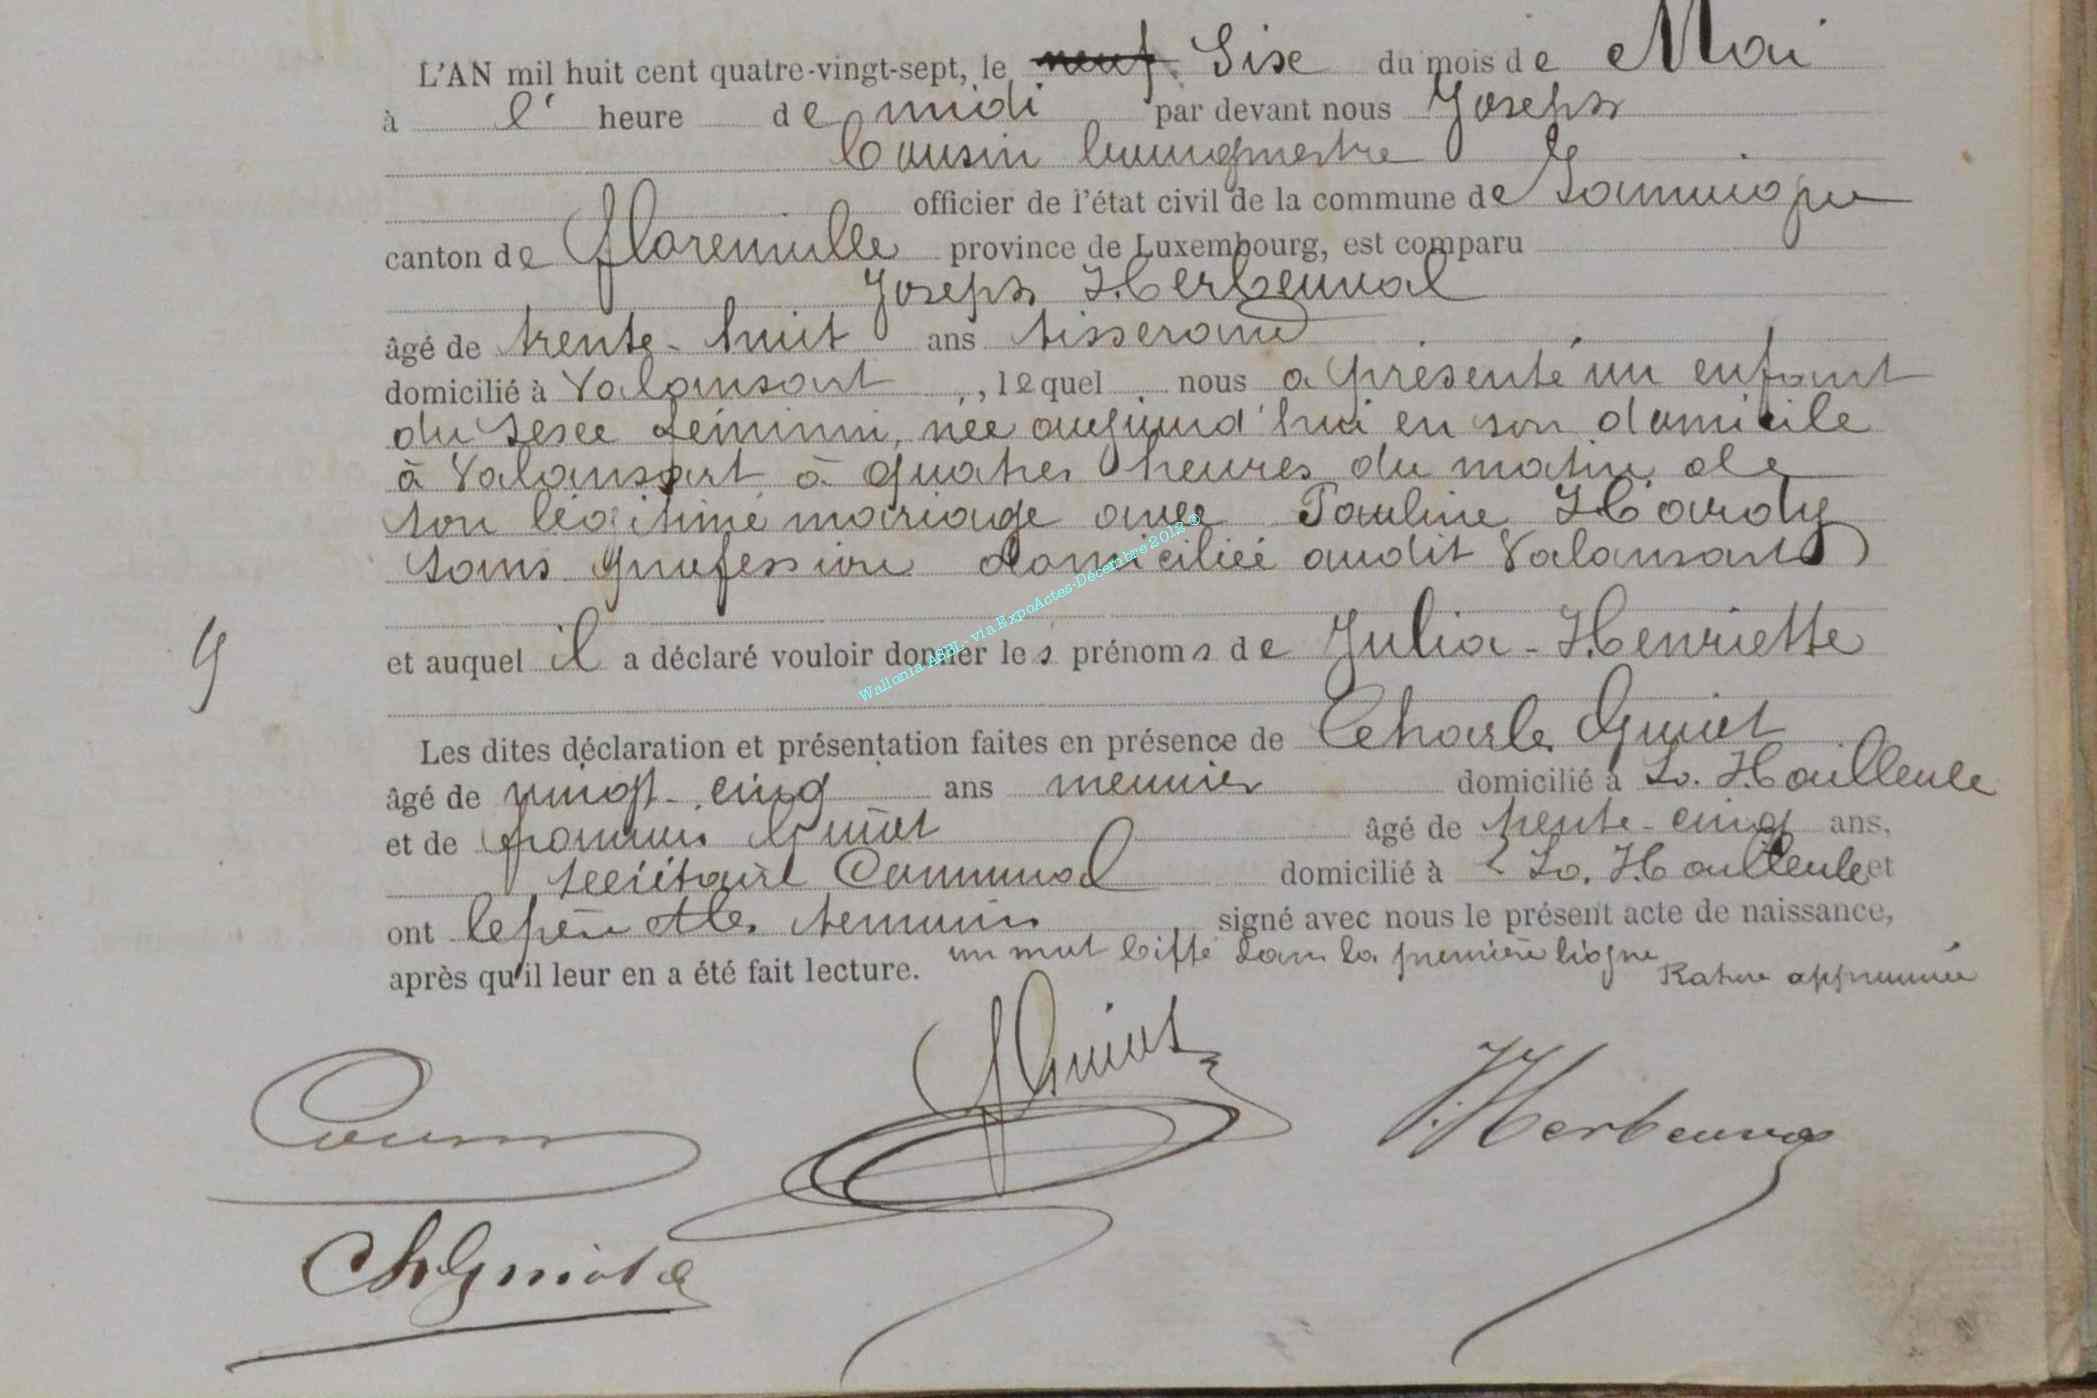 L'AN mil huit cent quatre-vingt-sept, le neuf Sixe du mois de Mai
à l' heure de midi par devant nous Joseph
Cousin bourgmestre
officier de l'état civil de la commune de Jamoigne
canton de florenville province de Luxembourg, est comparu
Joseph Herbeuval
âgé de trente-huit ans tisserand
domicilié à Valansart, lequel nous a présenté un enfant
du sexe féminin, née aujourd'hui en son domicile
à Valansart à quatres heures du matin de
son légitime mariage avec Pauline Hardy
sans profession domiciliée audit Valansart
et auquel il a déclaré vouloir donner les prénoms de Julia-Henriette
9
Les dites déclaration et présentation faites en présence de Charles Guiot
âgé de vingt-cinq ans meunier domicilié à La Hailleule
et de françois Guiot âgé de trente-cinq ans,
secrétaire Communal domicilié à La Hailleule et
ont le père et les temoins signé avec nous le présent acte de naissance,
après qu'il leur en a été fait lecture. un mot biffé dans la première ligne Rature approuvée
Cousin
f Guiot
J. Herbeuval
Ch Guiot
Wallonia ASBL - via ExpoActes-Décembre 2012 ©